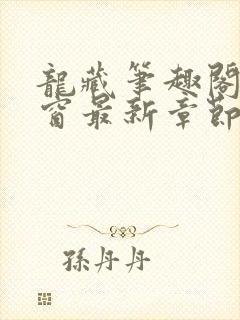 龍藏筆趣閣
窗最新章節
孫丹丹